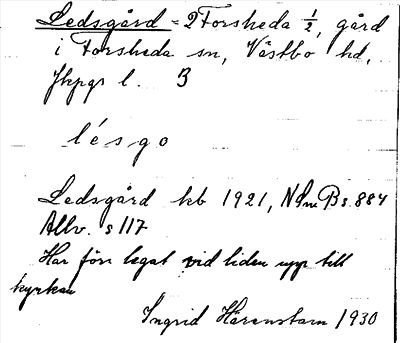 Ledsgård = 2 Forsheda 1/2, gård
i Forsheda sn, Västbo hd,
Jkpgs l. B
lésgo
Ledsgård kb 1921, NSmB s. 884
Allv. s 117
Har förr legat vid liden upp till
kyrkan
Ingrid Härenstam 1930